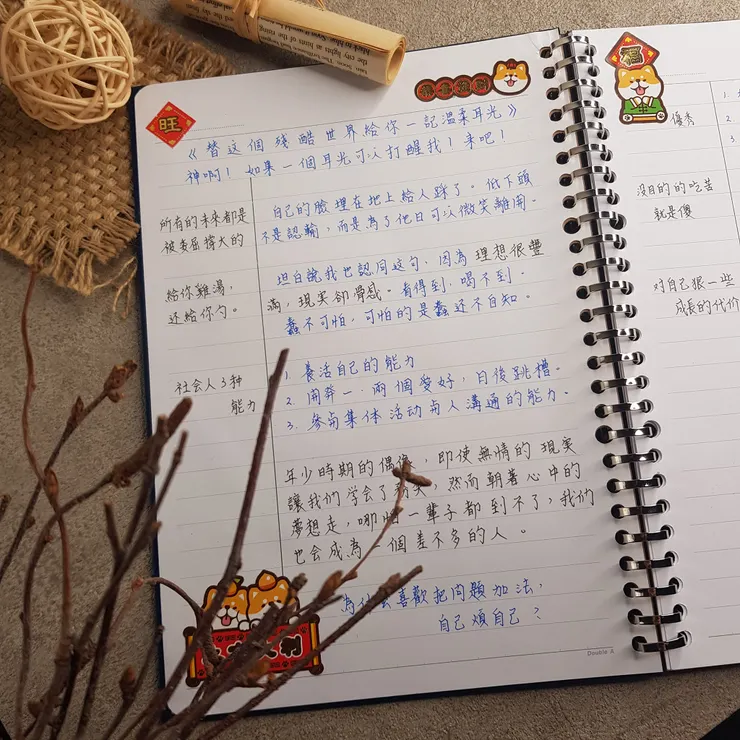 旺
《替這個殘酷世界給你一記溫柔耳光》
神啊！如果一個耳光可以打醒我！來吧！
所有的未來都是
被委屈撐大的
自己的臉埋在地上給人踩了。低下頭
不是認輸，而是為了他日可以微笑離開。
給你雞湯，
還給你勺。
坦白說我也認同這句，因為理想很豐
滿，現實卻骨感。看得到，喝不到。
蠢不可怕，可怕的是蠢还不自知。
社会人3种
能力
1. 養活自己的能力
2. 開莽一．兩個愛好，日後跳槽。
3. 參与集体活动与人溝通的能力。
年少時期的偶像，即使無情的現実
讓我們学会了，然而朝著心中的
夢想走，哪怕一輩子都到不了，我們
也会成為一個差不多的人。
為什么喜歡把问題加法，
自己煩自己？
Double A
福
優秀
1.
2
3
没目的的吃苦
就是傻
对自己狠一些
成長的代价